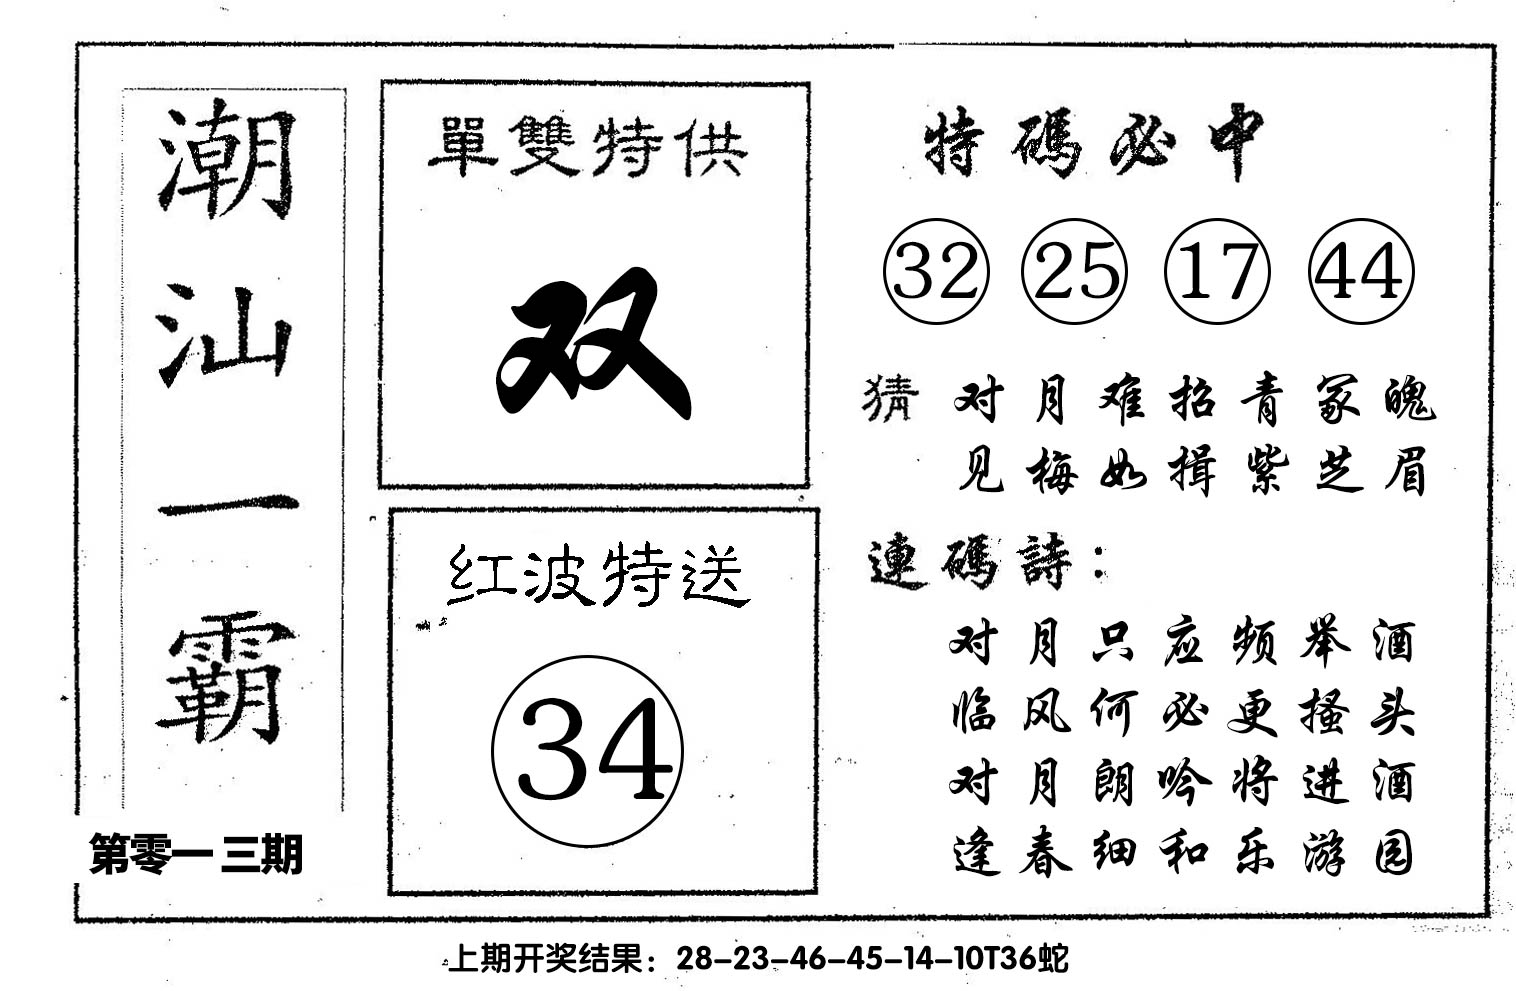 潮汕一霸
第零一三期
單雙特供
双
红波特送
34
特碼必中
32 25 17 44
猜 对月难招青冢魄
见梅如揖紫芝眉
連碼詩：
对月只应频举酒
临风何必更搔头
对月朗吟将进酒
逢春细和乐游园
上期开奖结果：28-23-46-45-14-10T36蛇